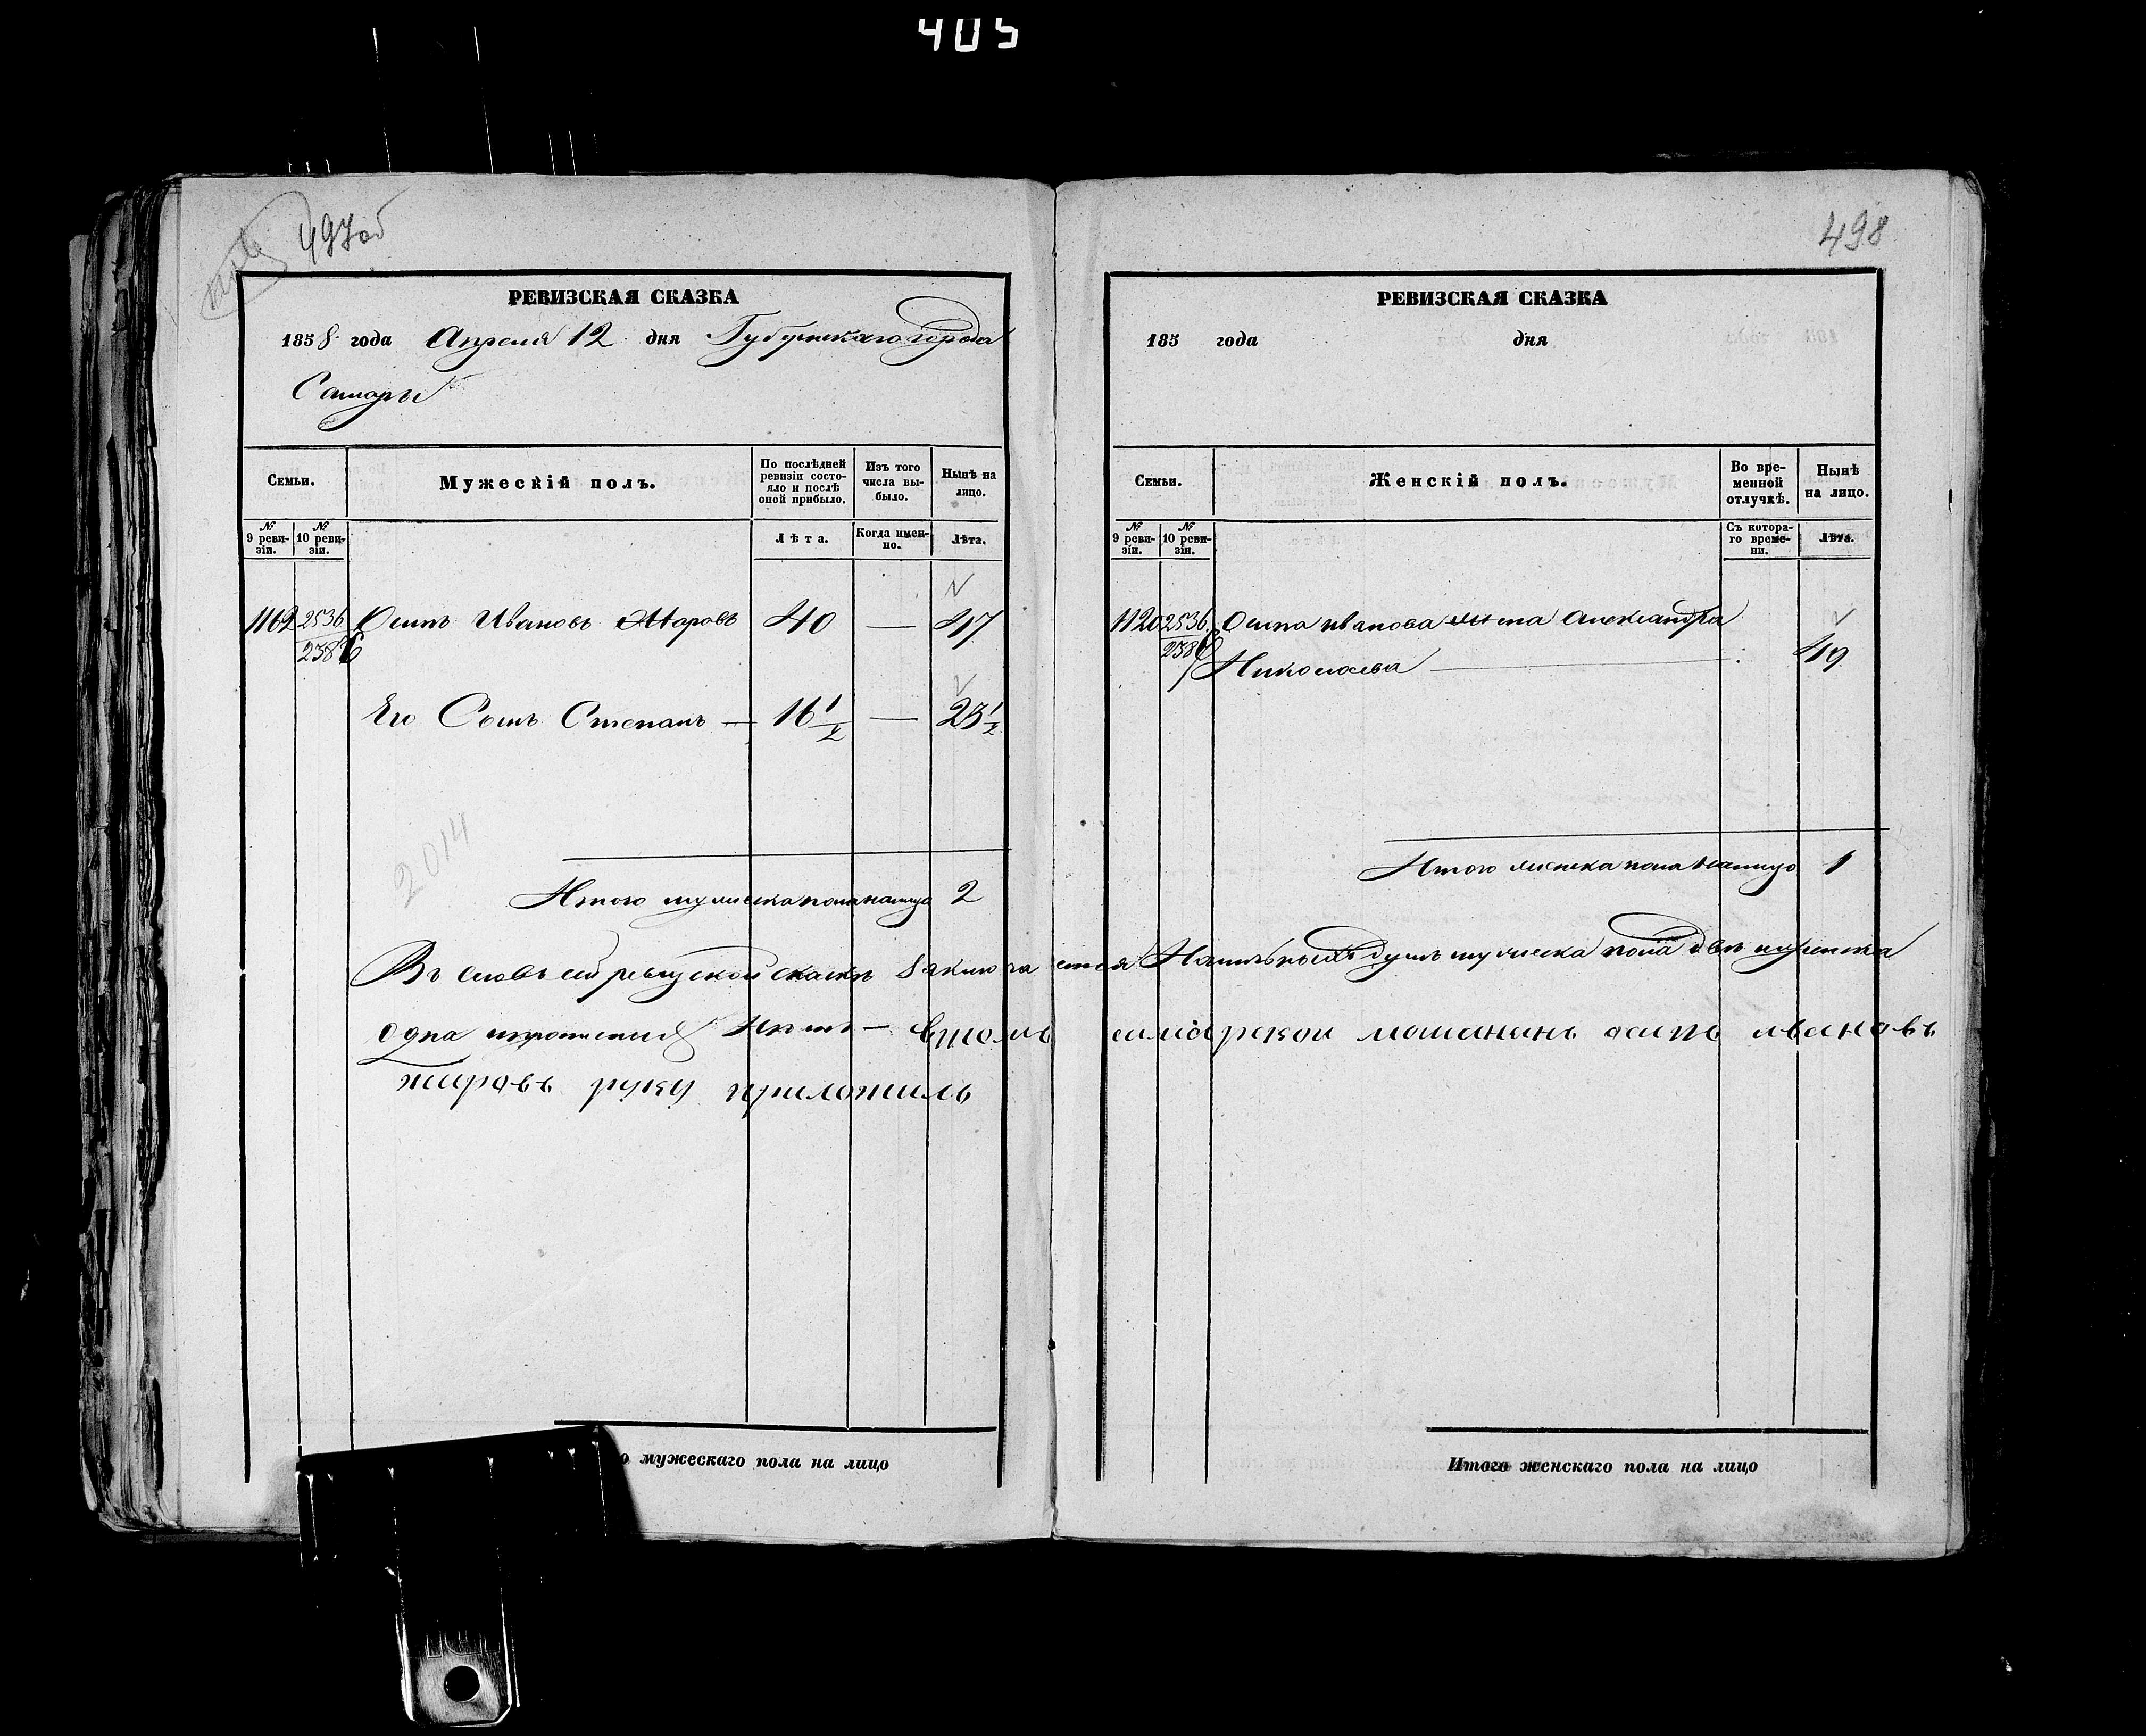 405
497об
РЕВИЗСКАЯ СКАЗКА
1858 года Апреля 12 дня Губернскаго города
Самары
Семьи.
Мужескій полъ.
По послѣдней ревизіи состояло и послѣ оной прибыло.
Изъ того числа выбыло.
Нынѣ на лицо.
№ 9 ревизіи.
№ 10 ревизіи.
Лѣта.
Когда именно.
Лѣта.
1162 2536 Осипъ Ивановъ Жаровъ 40 — 47
Его Сынъ Степанъ — 16 1/2 — 23 1/2
2014
Итого мужеска пола налицо 2
498
РЕВИЗСКАЯ СКАЗКА
185 года дня
Семьи.
Женскій полъ.
Во временной отлучкѣ.
Нынѣ на лицо.
№ 9 ревизіи.
№ 10 ревизіи.
Съ котораго времени.
Лѣта.
1120 2536 Осипа иванова жена Александра
Николаева 49
Итого женска пола налицо 1
Въ сей ревизской сказкѣ заключается Наличныхъ душъ мужеска пола двѣ и женска
одна втомъ самарской мещанинъ осипъ ивановъ
жаровъ руку приложилъ
о мужескаго пола на лицо
Итого женскаго пола на лицо